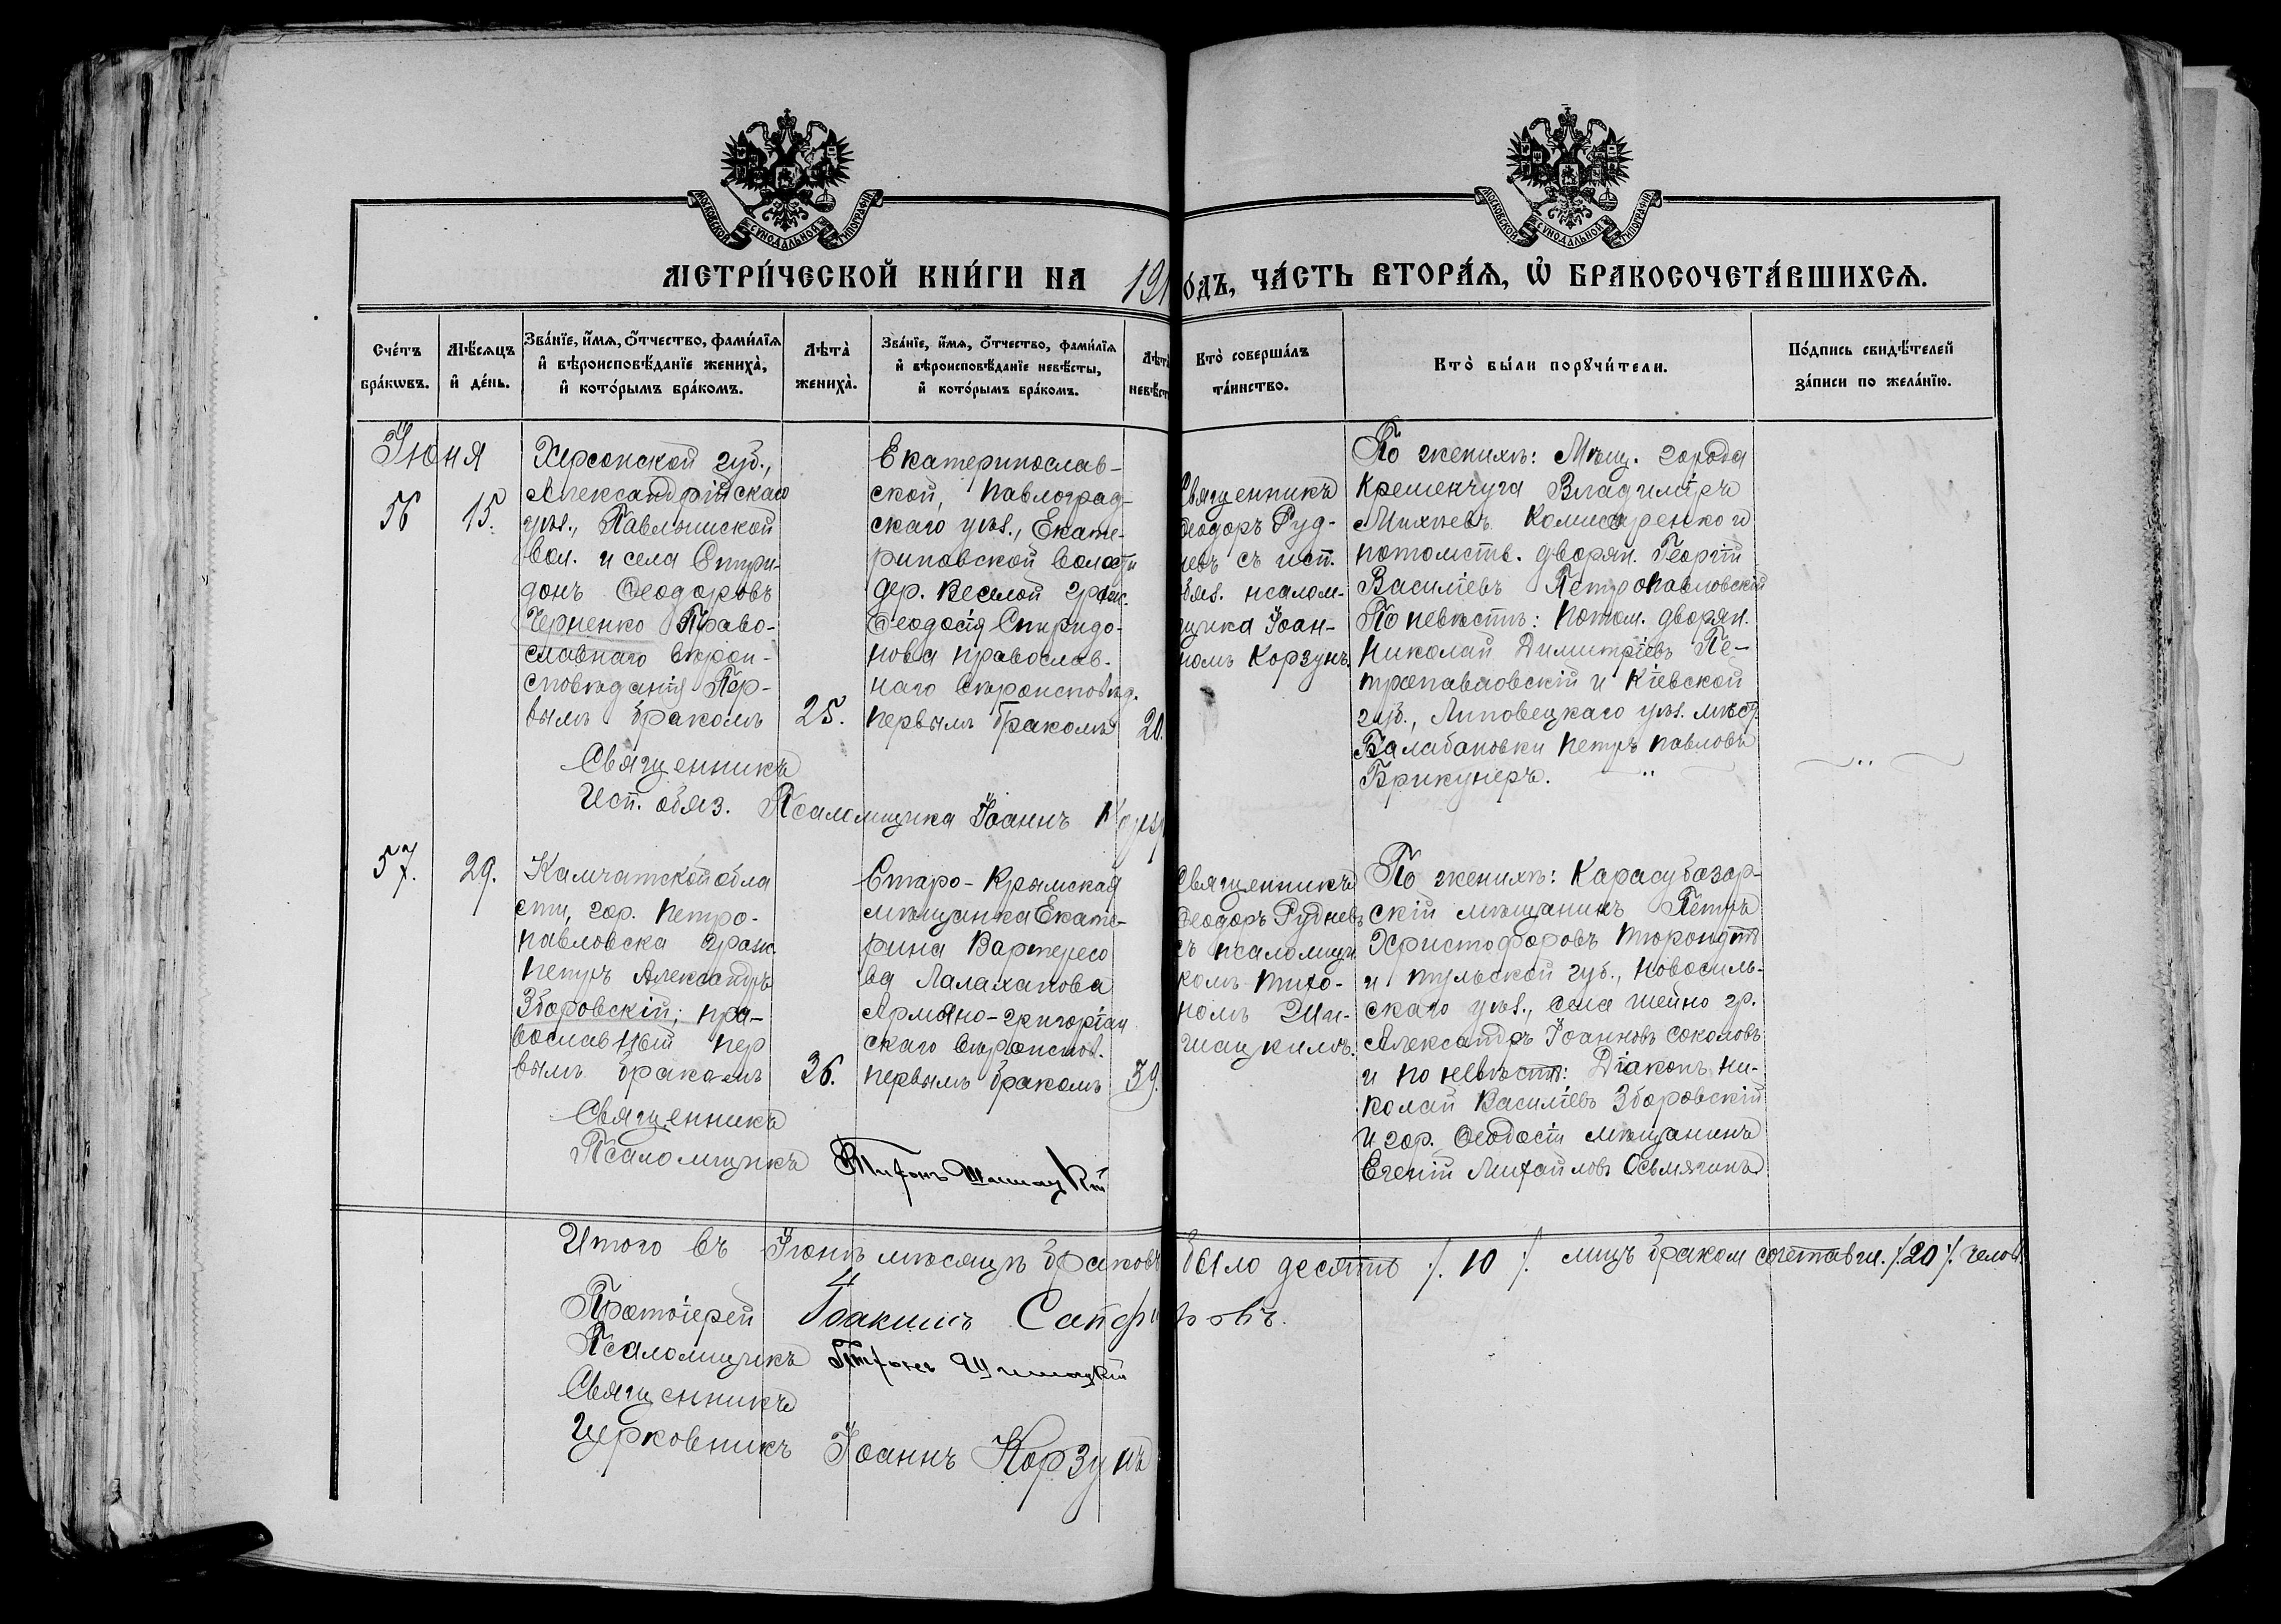 МОСКОВСКОЙ СУНОДАЛЬНОЙ ТИПОГРАФІИ
МОСКОВСКОЙ СУНОДАЛЬНОЙ ТИПОГРАФІИ
МЕТРИ́ЧЕСКОЙ КНИ́ГИ НА 191
О́ДЪ, ЧА́СТЬ ВТОРА́Ѧ, Ѡ҆ БРАКОСОЧЕТА́ВШИХСѦ.
Сче́тъ
бра́кѡвъ.
Мѣ́сѧцъ
и҆ де́нь.
Зва́нїе, и҆́мѧ, о҆́тчество, фами́лїѧ
и҆ вѣроисповѣ́данїе жениха̀,
и҆ кото́рымъ бра́комъ.
Лѣта̀
жениха̀.
Зва́нїе, и҆́мѧ, о҆́тчество, фами́лїѧ
и҆ вѣроисповѣ́данїе невѣ́сты,
и҆ кото́рымъ бра́комъ.
Лѣта̀
невѣ́ст
Кто̀ соверша́лъ
та́инство.
Кто̀ бы́ли порꙋчи́тели.
По́дпись свидѣ́телей
за́писи по жела́нїю.
Іюня
56
15.
Херсонской губ.,
Александрійскаго
уѣз., Павлышской
вол. и села Спири-
донъ Ѳеодоровъ
Черненко Право-
славнаго вѣрои-
сповѣданія Пер-
вымъ бракомъ
25.
Екатеринослав-
ской, Павлоград-
скаго уѣз., Екате-
риновской волости
дер. Веселой граж.
Ѳеодосія Спиридо-
нова православ-
наго вѣроисповѣд.
первымъ бракомъ
20.
Священникъ
Ѳеодоръ Руд-
невъ съ исп.
обяз. псалом-
щика Іоан-
номъ Корзунъ.
По женихѣ: Мѣщ. города
Кременчуга Владиміръ
Михѣевъ Комисаренко и
потомств. дворян. Георгій
Василіевъ Петропавловскій
По невѣстѣ: Потом. дворян.
Николай Димитріевъ Пе-
тропавловскій и Кіевской
губ., Липовецкаго уѣз. мѣст.
Балабановки Петръ Павловъ
Брикунеръ.
Священникъ
Исп. обяз. Псаломщика Іоаннъ Корзу
57.
29.
Камчатской обла
сти, гор. Петро-
павловска граж.
Петръ Александръ
Зборовскій, пра-
вославный пер
вымъ бракомъ
26.
Старо-Крымская
мѣщанка Екате-
рина Вартересо
ва Лалаханова
Армяно-григоріан
скаго вѣроиспов.
первымъ бракомъ
39.
Священникъ
Ѳеодоръ Рудневъ
съ псаломщи
комъ Тихо-
номъ Ши-
шацкимъ.
По женихѣ: Карасубазар-
скій мѣщанинъ Петръ
Христофоровъ
и Тульской губ., Новосиль-
скаго уѣз., села Шейно гр.
Александръ Іоанновъ Соколовъ
и по невѣстѣ: Діаконъ Ни-
колай Василіевъ Зборовскій
и гор. Ѳеодосіи мѣщанинъ
Евгеній Михайловъ Осьмягинъ
Священникъ
Псаломщикъ Тихонъ Шишацкій
Итого въ Іюнѣ мѣсяцѣ браковъ было десять /. 10 /. лицъ браком сочетавш. /. 20 /. челов.
Протоіерей Іоакимъ Сапфировъ.
Псаломщикъ Тихонъ Шишацкій
Священникъ
Церковникъ Іоаннъ Корзунъ